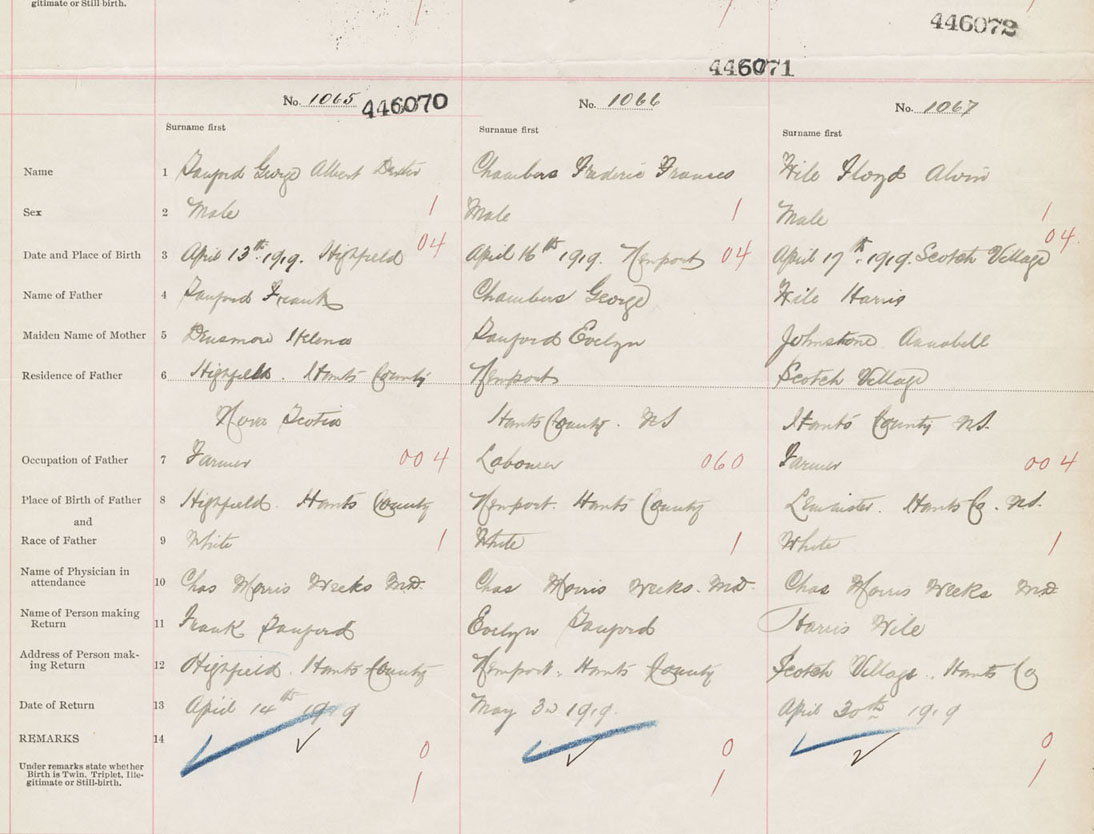 gitimate or Still birth.
446072
446071
No. 1065 446070 No. 1066 No. 1067
Surname first Surname first Surname first
Name 1 Sanford George Albert Dexter Chambers Frederic Frances Wile Floyd Alvin
Sex 2 Male 1 Male 1 Male 1
Date and Place of Birth 3 April 13th 1919. Highfield 04 April 16th 1919. Newport 04 April 17th 1919. Scotch Village 04
Name of Father 4 Sanford Frank Chambers George Wile Harris
Maiden Name of Mother 5 Densmore Helena Sanford Evelyn Johnstone Annabell
Residence of Father 6 Highfield. Hants County Newport Scotch Village
Nova Scotia Hants County. NS Hants County NS.
Occupation of Father 7 Farmer 004 Labourer 060 Farmer 004
Place of Birth of Father 8 Highfield. Hants County Newport. Hants County Hants Co. NS.
and
Race of Father 9 White 1 White 1 White 1
Name of Physician in
attendance 10 Chas Morris Weeks MD. Chas Morris Weeks. MD. Chas Morris Weeks MD
Name of Person making
Return 11 Frank Sanford Evelyn Sanford Harris Wile
Address of Person mak-
ing Return 12 Highfield. Hants County Newport. Hants County Scotch Village. Hants Co
Date of Return 13 April 14th 1919 May 3rd 1919. April 30th 1919
REMARKS 14 0 0 0
Under remarks state whether
Birth is Twin, Triplet, Ille-
gitimate or Still-birth. 1 1 1